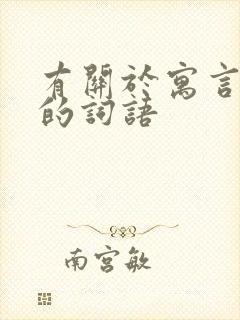 有關於寓言
的詞語
南宮敏